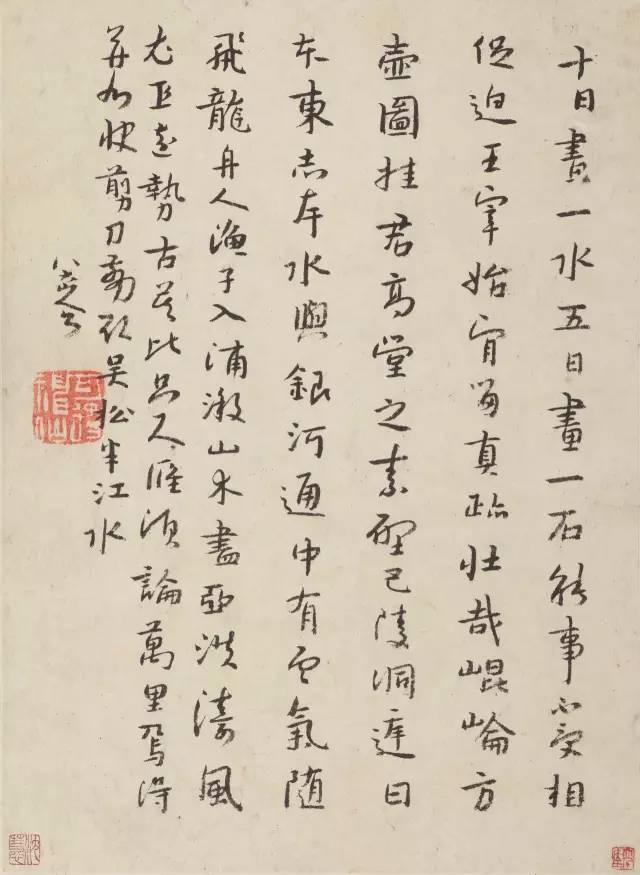 十日畫一水五日畫一石能事不受相
促迫王宰始肯留真跡壯哉崐崘方
壺圖挂君高堂之素壁巴陵洞庭日
本東赤岸水與銀河通中有雲氣隨
飛龍舟人漁子入浦漵山木盡亞洪濤風
尤工遠勢古莫比咫尺應須論萬里焉得
并州快剪刀剪取吳松半江水
八大山人